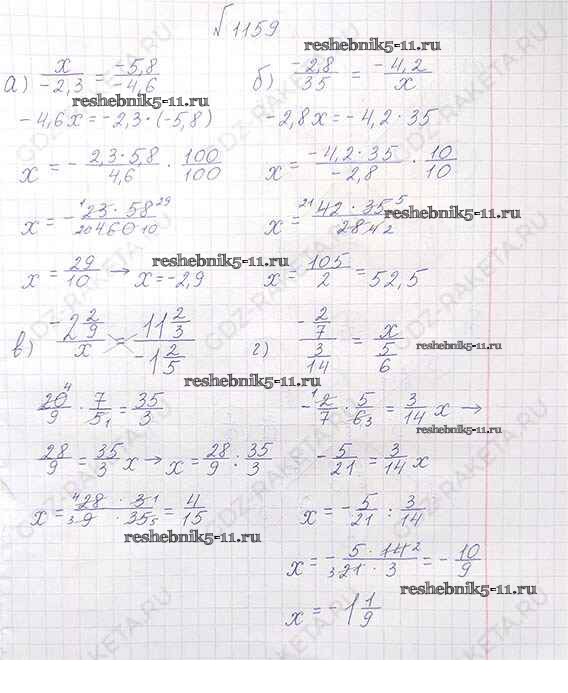 √1159
reshebnik5-11.ru
а) x/-2,3 = -5,8/-4,6
reshebnik5-11.ru
-4,6x = -2,3 · (-5,8)
x = - 2,3 · 5,8/4,6 · 100/100
x = - 23 · 58/460 10
x = 29/10 → x = -2,9
б) -2,8/35 = -4,2/x
-2,8x = -4,2 · 35
x = -4,2 · 35/-2,8 · 10/10
x = 42 · 35/28
reshebnik5-11.ru
reshebnik5-11.ru
x = 105/2 = 52,5
в) -2 2/9/x = 11 2/3/-1 2/5
reshebnik5-11.ru
20/9 · 7/5 = 35/3
28/9 = 35/3 x → x = 28/9 : 35/3
x = 28 · 3/9 · 35 = 4/15
reshebnik5-11.ru
г) -2/7/3/14 = x/5/6
reshebnik5-11.ru
-2/7 · 5/6 = 3/14 x →
reshebnik5-11.ru
-5/21 = 3/14 x
x = -5/21 : 3/14
x = - 5 · 14/21 · 3 = -10/9
reshebnik5-11.ru
x = -1 1/9
GDZ-RAKETA.RU